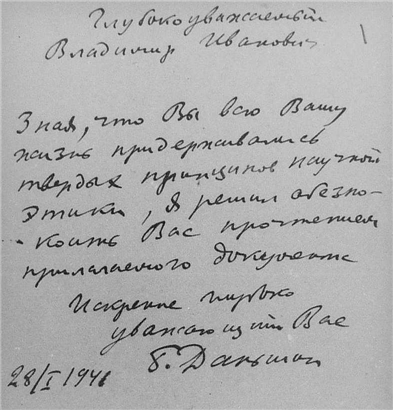 Глубокоуважаемый
Владимир Иванович
Зная, что Вы всю Вашу
жизнь придерживались
твердых принципов научной
этики, я решил обезпо-
коить Вас прочтением
прилагаемого документа
Искренне глубоко
уважающий Вас
28/I 1941